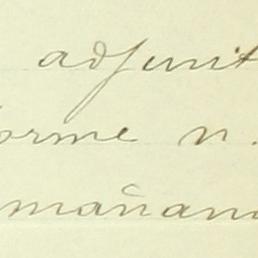 adjunt
forme n.
mañana